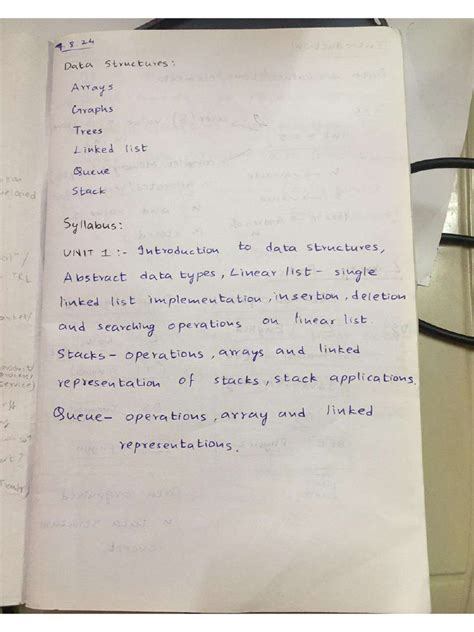 4.8.24
Data Structures:
Arrays
Graphs
Trees
Linked list
Queue
Stack
Syllabus:
UNIT 1 :- Introduction to data structures,
Abstract data types, Linear list - single
linked list implementation, insertion, deletion
and searching operations on linear list.
Stacks - operations, arrays and linked
representation of stacks, stack applications.
Queue - operations, array and linked
representations.